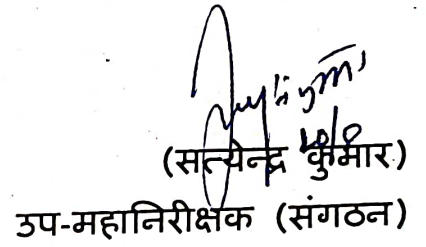 (सत्येन्द्र कुमार)
उप-महानिरीक्षक (संगठन)